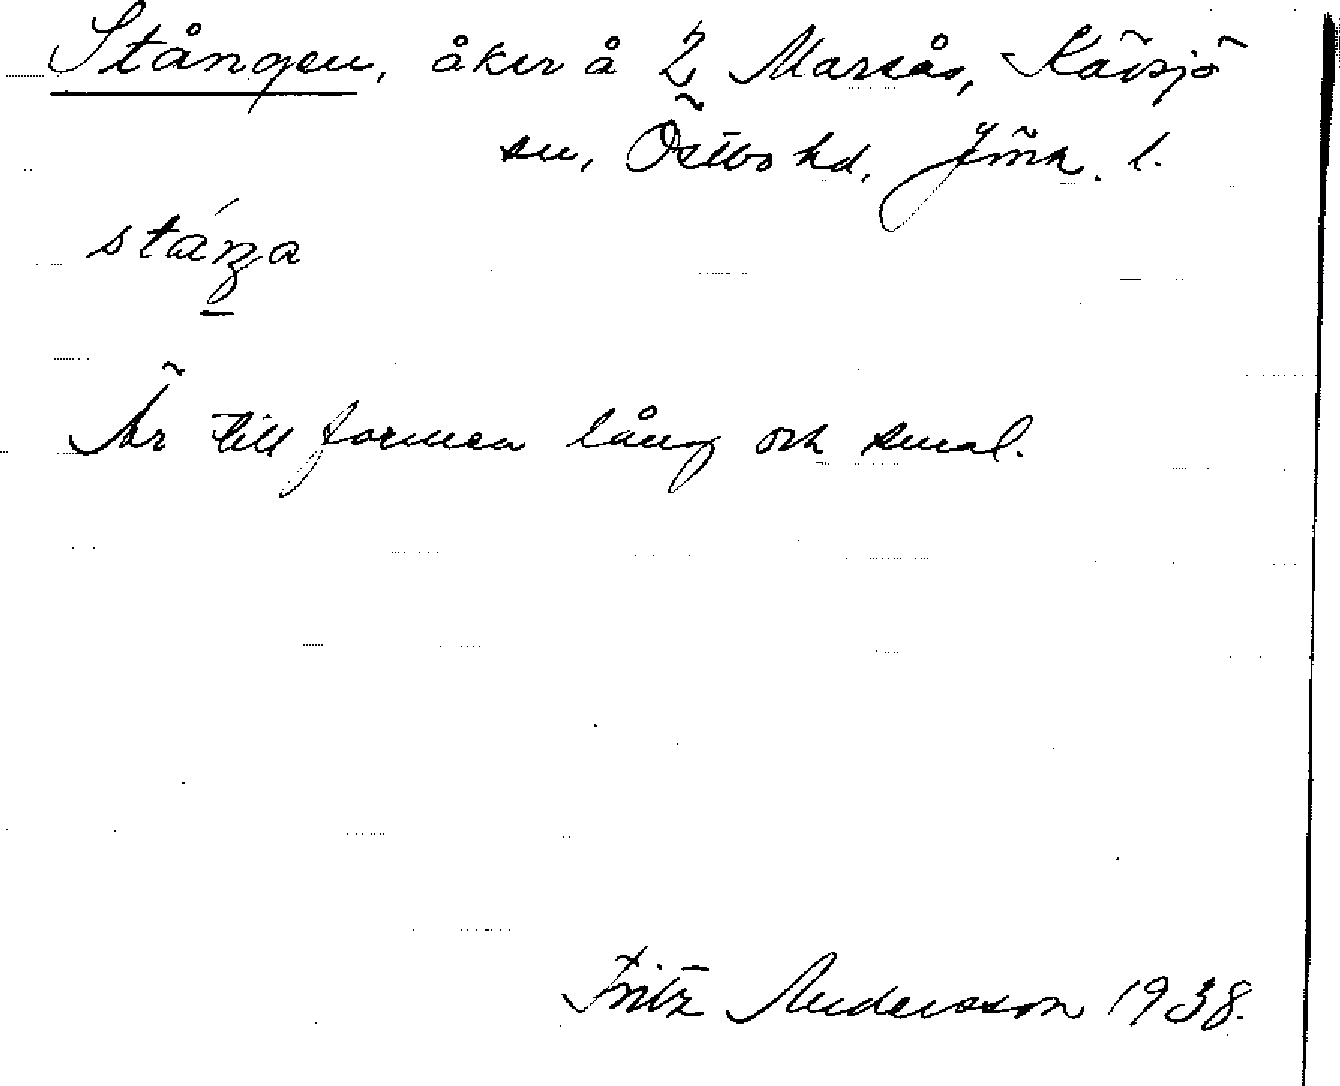 Stången, åker å 2 Marsås, Kävsjö
sn, Östbo hd, Jönk. l.
stáŋa
Är till formen lång och smal.
Fritz Andersson 1938.